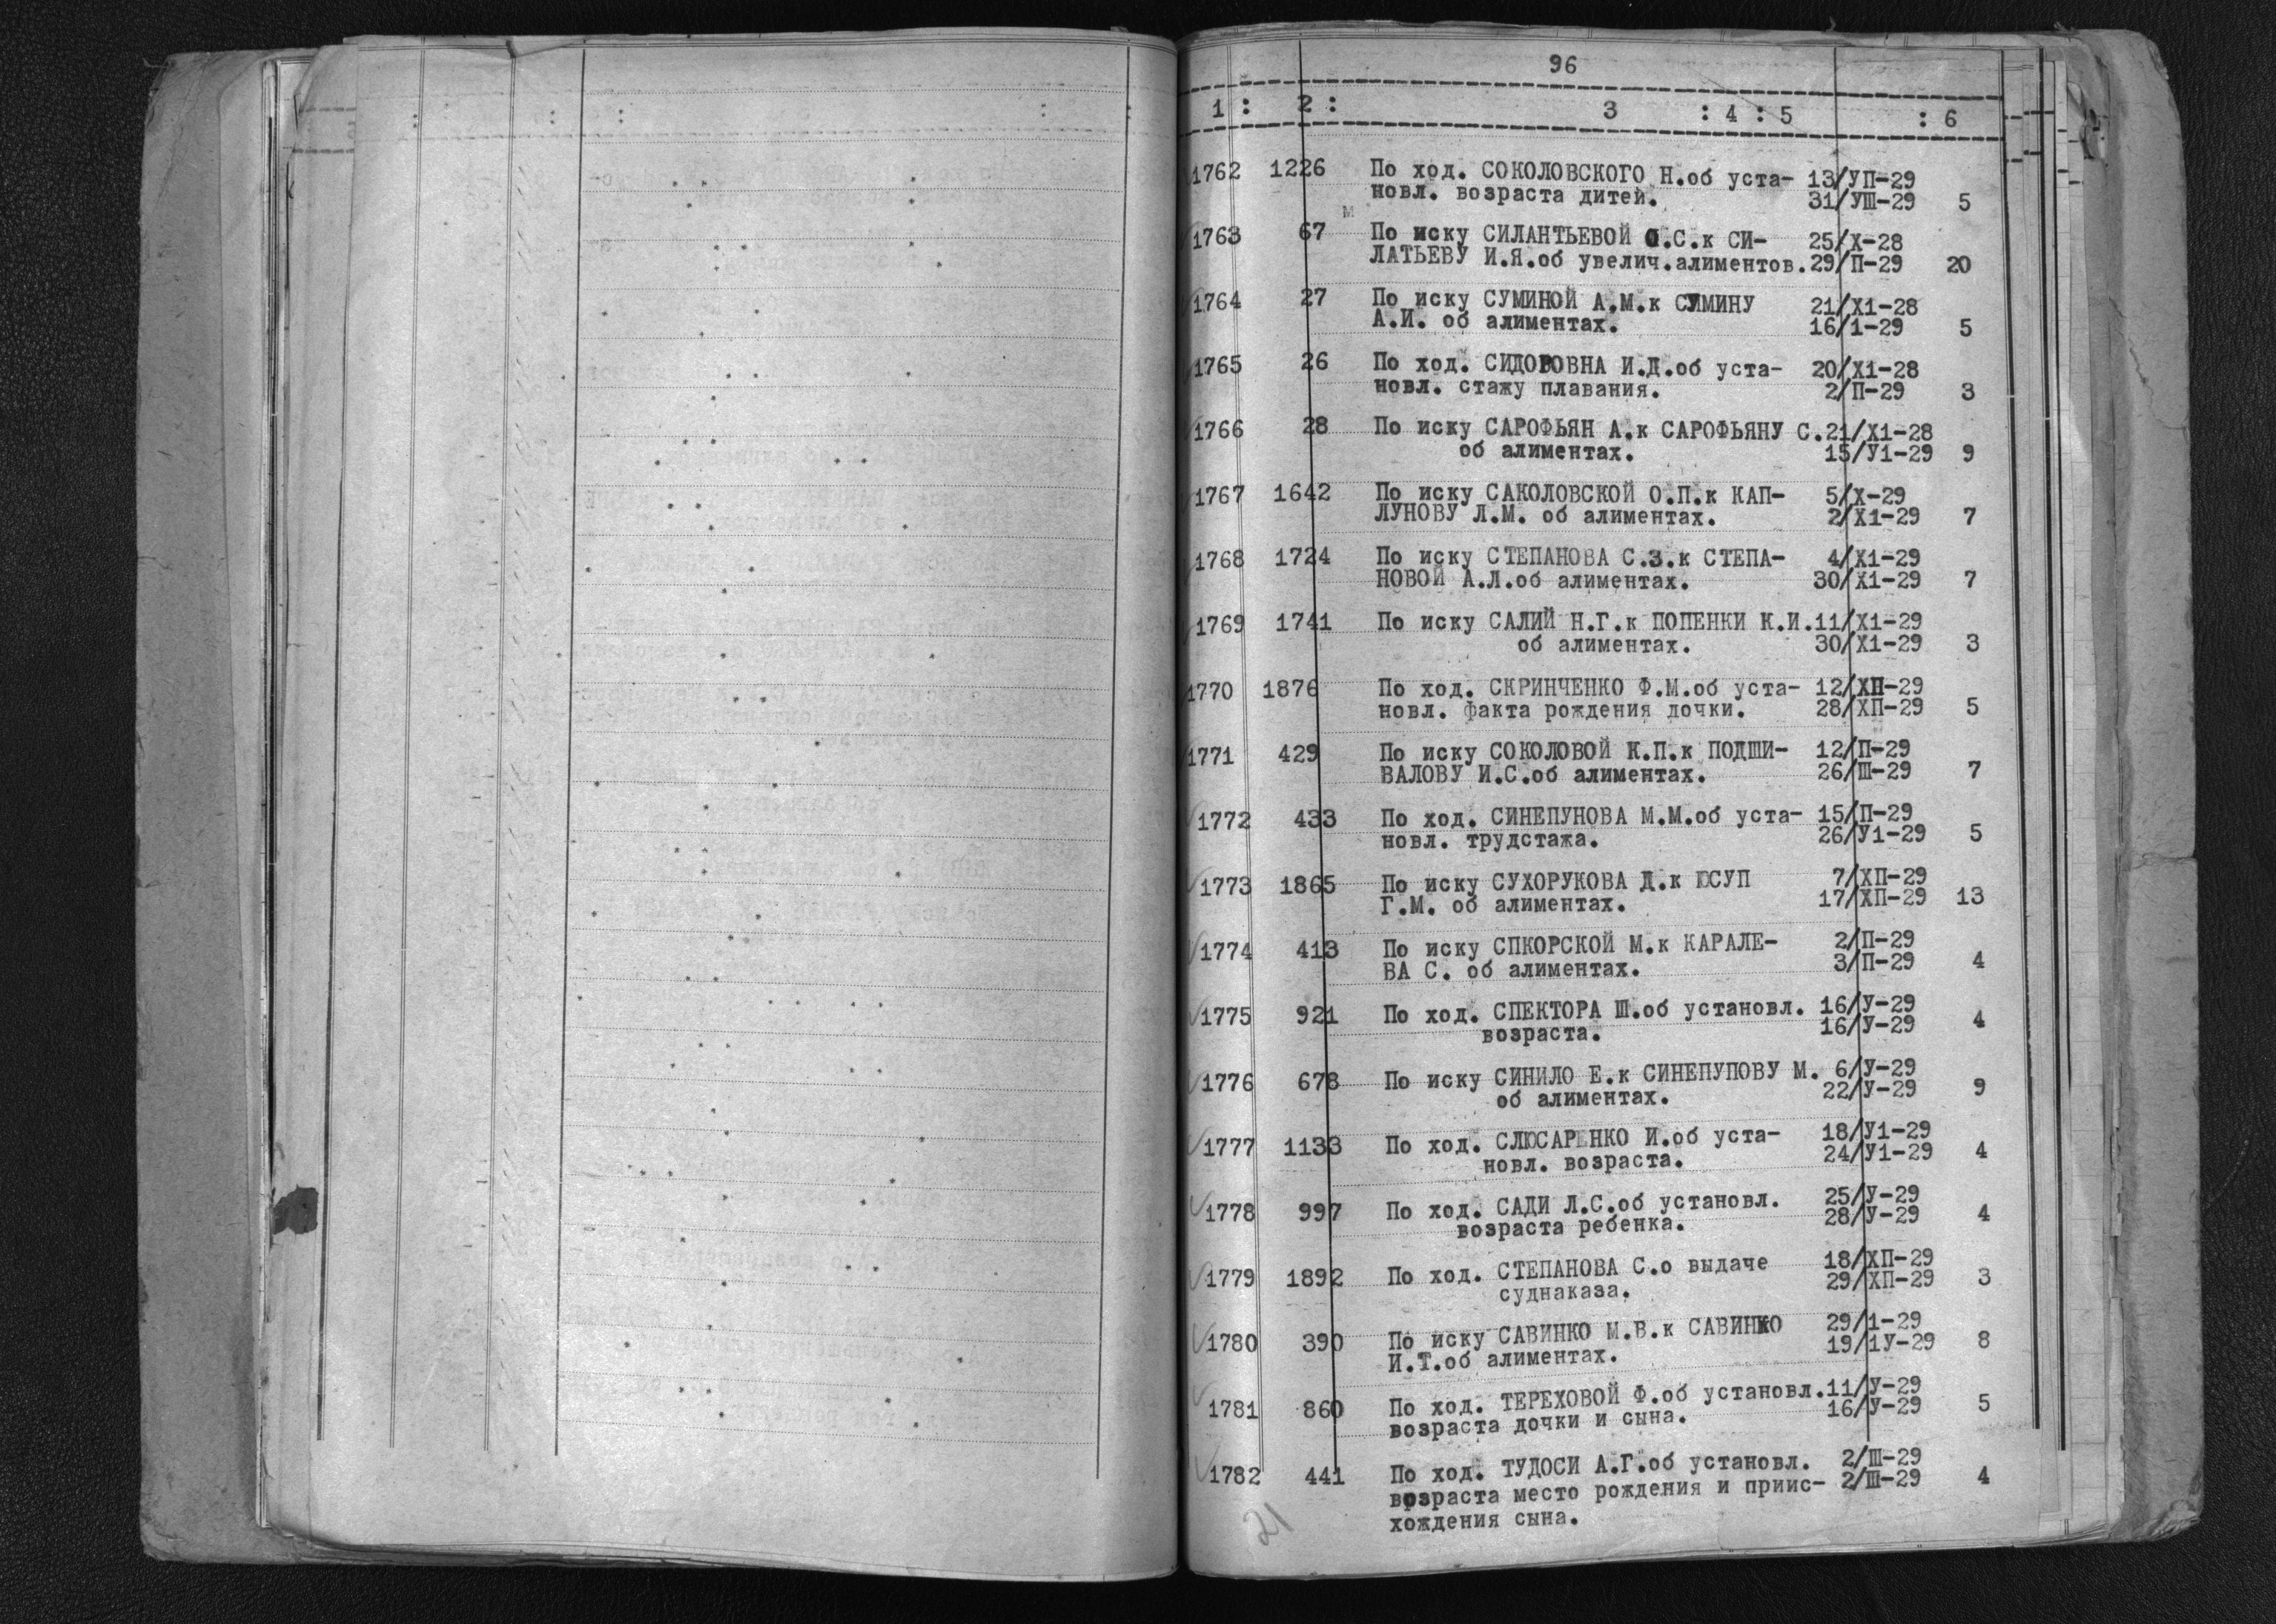 96
1 : 2 : 3 : 4 : 5 : 6
1762 1226 По ход. СОКОЛОВСКОГО Н.об уста- 13/УП-29
новл. возраста дитей. 31/УШ-29 5
м
1763 67 По иску СИЛАНТЬЕВОЙ О.С.к СИ- 25/Х-28
ЛАТЬЕВУ И.Я.об увелич.алиментов. 29/П-29 20
1764 27 По иску СУМИНОЙ А.М.к СУМИНУ 21/Х1-28
А.И. об алиментах. 16/1-29 5
1765 26 По ход. СИДОРОВНА И.Д.об уста- 20/Х1-28
новл. стажу плавания. 2/П-29 3
1766 28 По иску САРОФЬЯН А.к САРОФЬЯНУ С. 21/Х1-28
об алиментах. 15/У1-29 9
1767 1642 По иску САКОЛОВСКОЙ О.П.к КАП- 5/Х-29
ЛУНОВУ Л.М. об алиментах. 2/Х1-29 7
1768 1724 По иску СТЕПАНОВА С.З.к СТЕПА- 4/Х1-29
НОВОЙ А.Л.об алиментах. 30/Х1-29 7
1769 1741 По иску САЛИЙ Н.Г.к ПОПЕНКИ К.И. 11/Х1-29
об алиментах. 30/Х1-29 3
1770 1876 По ход. СКРИНЧЕНКО Ф.М.об уста- 12/ХП-29
новл. факта рождения дочки. 28/ХП-29 5
1771 429 По иску СОКОЛОВОЙ К.П.к ПОДШИ- 12/П-29
ВАЛОВУ И.С.об алиментах. 26/Ш-29 7
1772 433 По ход. СИНЕПУНОВА М.М.об уста- 15/П-29
новл. трудстажа. 26/У1-29 5
1773 1865 По иску СУХОРУКОВА Д.к ЮСУП 7/ХП-29
Г.М. об алиментах. 17/ХП-29 13
1774 413 По иску СПКОРСКОЙ М.к КАРАЛЕ- 2/П-29
ВА С. об алиментах. 3/П-29 4
1775 921 По ход. СПЕКТОРА Ш.об установл. 16/У-29
возраста. 16/У-29 4
1776 678 По иску СИНИЛО Е.к СИНЕПУПОВУ М. 6/У-29
об алиментах. 22/У-29 9
1777 1133 По ход. СЛЮСАРЕНКО И.об уста- 18/У1-29
новл. возраста. 24/У1-29 4
1778 997 По ход. САДИ Л.С.об установл. 25/У-29
возраста ребенка. 28/У-29 4
1779 1892 По ход. СТЕПАНОВА С.о выдаче 18/ХП-29
суднаказа. 29/ХП-29 3
1780 390 По иску САВИНКО М.В.к САВИНКО 29/1-29
И.Т.об алиментах. 19/1У-29 8
1781 860 По ход. ТЕРЕХОВОЙ Ф.об установл. 11/У-29
возраста дочки и сына. 16/У-29 5
1782 441 По ход. ТУДОСИ А.Г.об установл. 2/Ш-29
возраста место рождения и приис- 2/Ш-29 4
хождения сына.
21